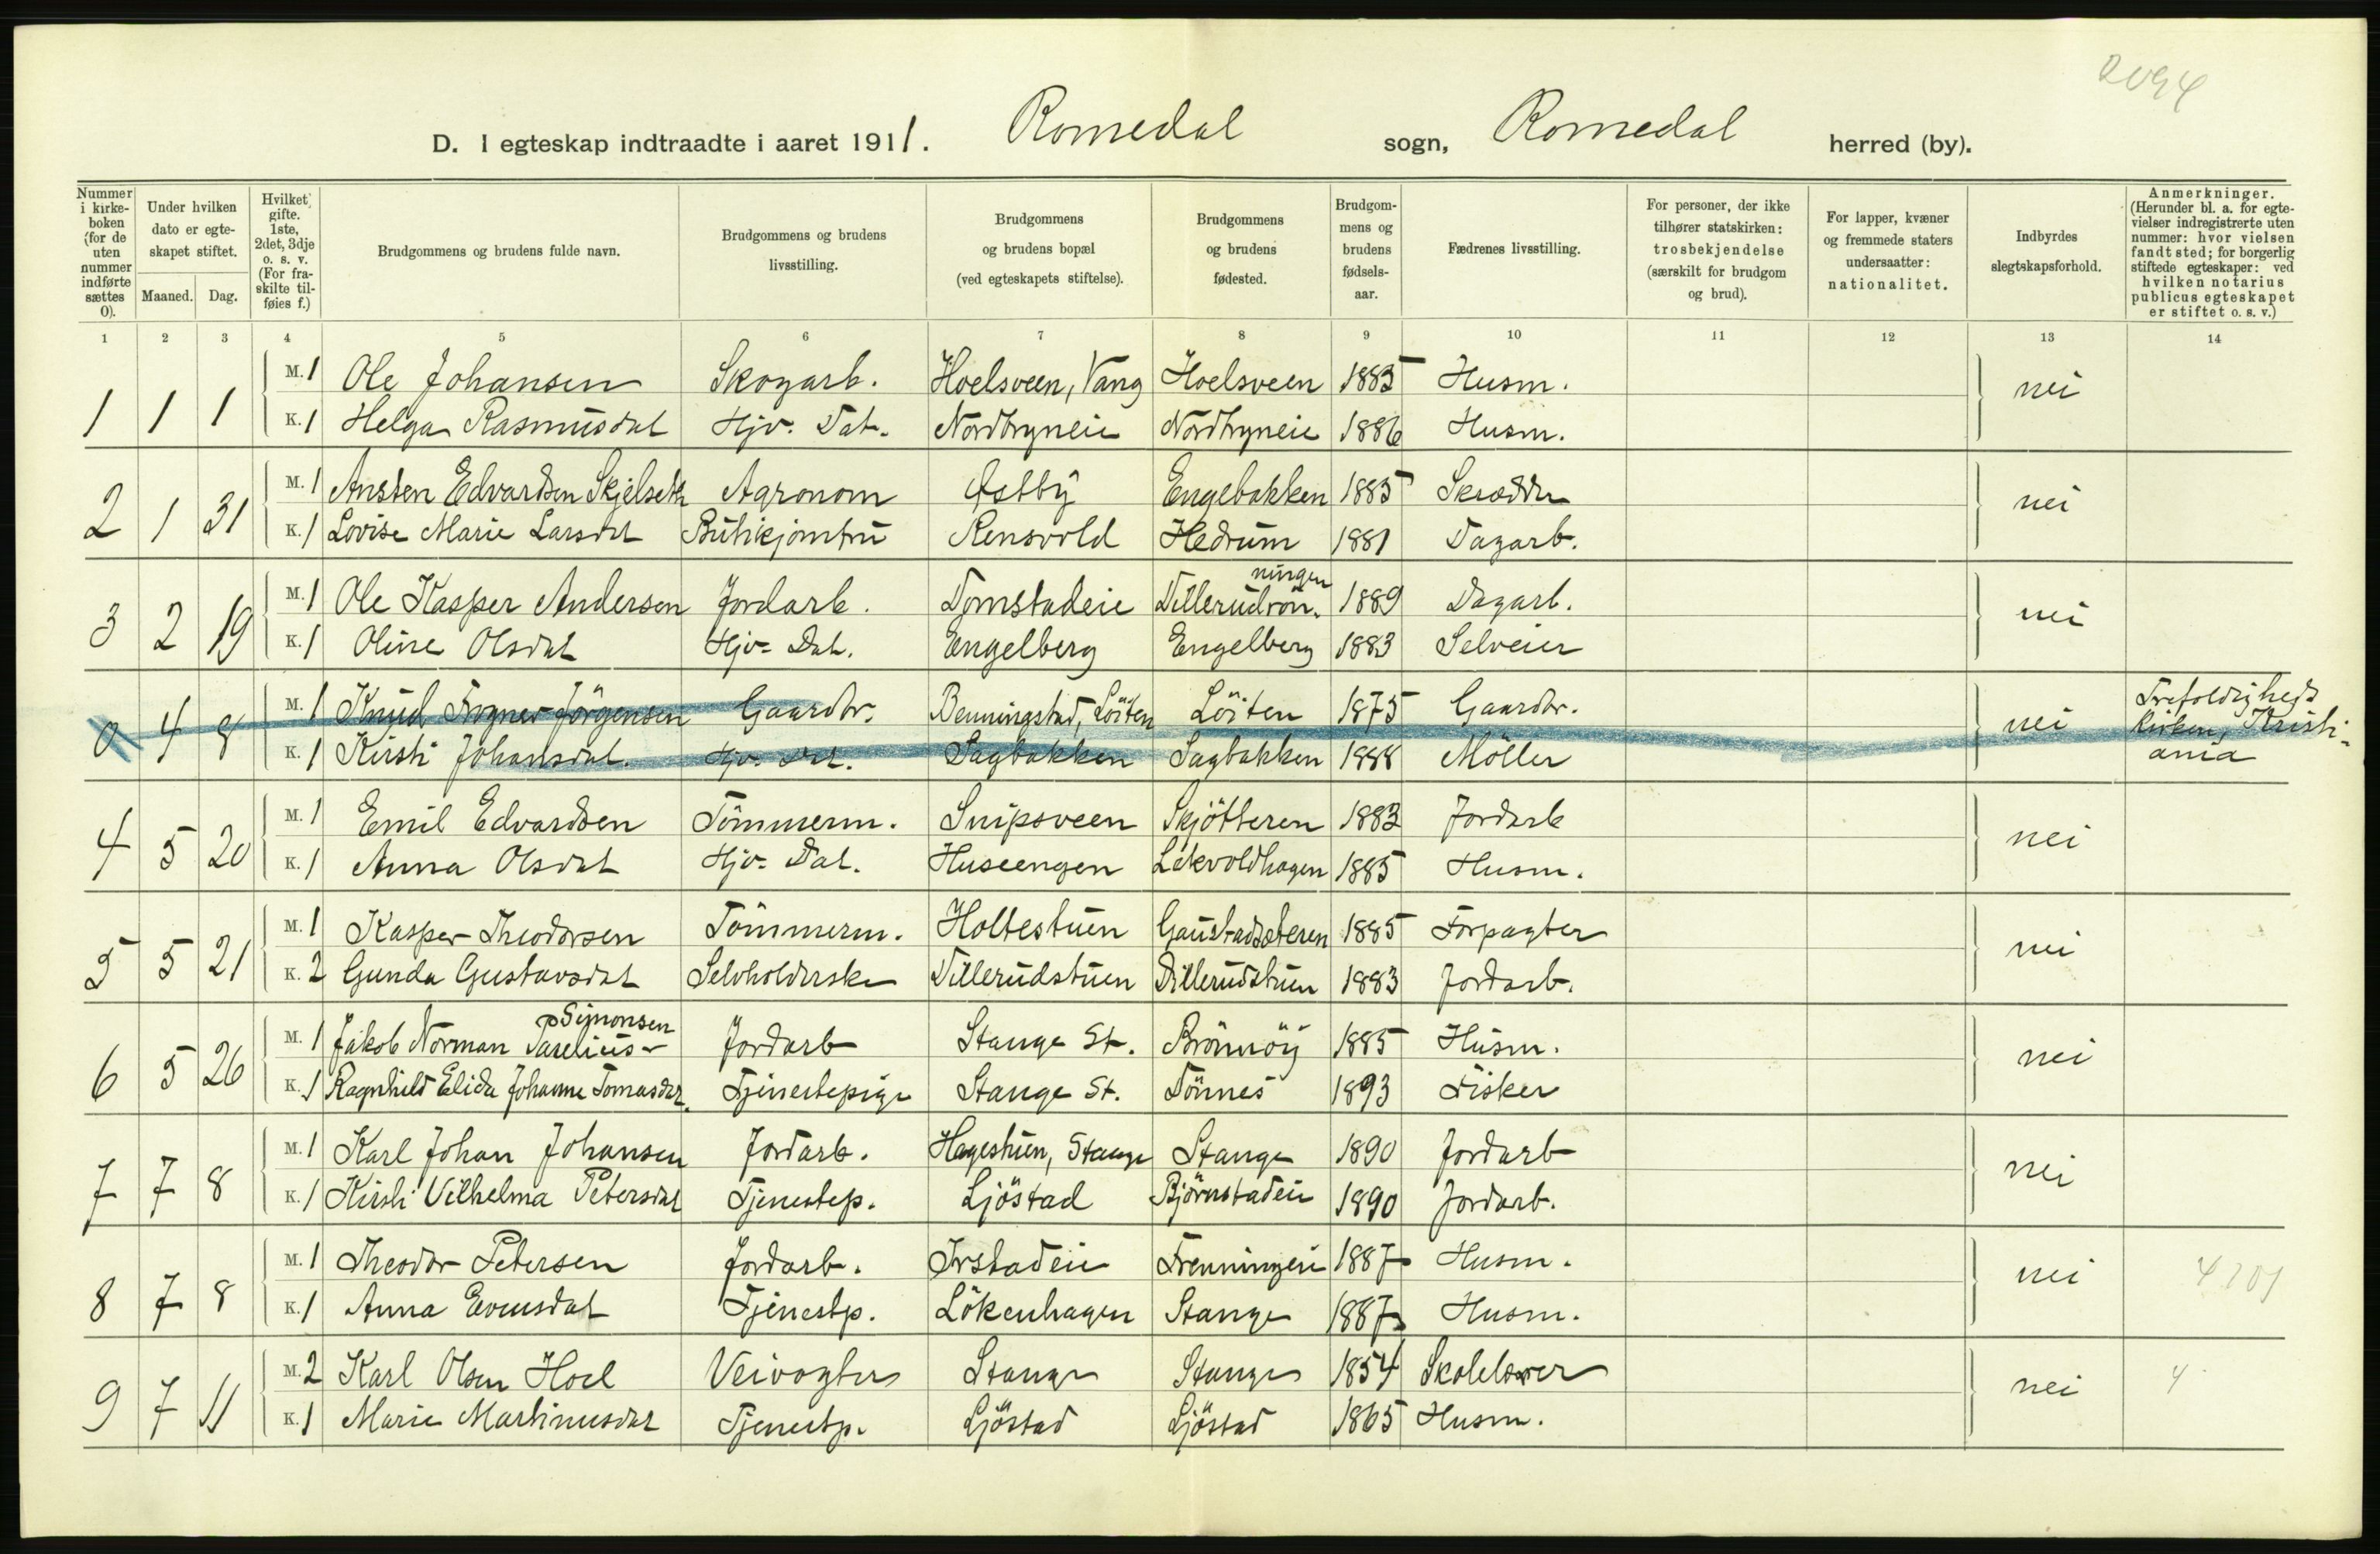 2094
D. I egteskap indtraadte i aaret 1911. Romedal sogn, Romedal herred (by).
Nummer i kirkeboken (for de uten nummer indførte sættes 0).
Under hvilken dato er egteskapet stiftet.
Maaned. Dag.
Hvilket gifte. 1ste, 2det, 3dje o. s. v. (For fraskilte tilføies f.)
Brudgommens og brudens fulde navn.
Brudgommens og brudens livsstilling.
Brudgommens og brudens bopæl (ved egteskapets stiftelse).
Brudgommens og brudens fødested.
Brudgommens og brudens fødselsaar.
Fædrenes livsstilling.
For personer, der ikke tilhører statskirken: trosbekjendelse (særskilt for brudgom og brud).
For lapper, kvæner og fremmede staters undersaatter: nationalitet.
Indbyrdes slegtskapsforhold.
Anmerkninger. (Herunder bl. a. for egtevielser indregistrerte uten nummer: hvor vielsen fandt sted; for borgerlig stiftede egteskaper: ved hvilken notarius publicus egteskapet er stiftet o. s. v.)
1 2 3 4 5 6 7 8 9 10 11 12 13 14
M. 1 Ole Johansen Skogarb. Hoelsveen, Vang Hoelsveen 1885 Husm.
1 1 1 nei
K. 1 Helga Rasmusdat Hjv. Dat. Nordbyneie Nordbyneie 1886 Husm.
M. 1 Ansten Edvardsen Skjelseth Agronom Østby Engebakken 1885 Skrædder
2 1 31 nei
K. 1 Lovise Marie Larsdat Butikjomfru Rensvold Hedrum 1881 Dagarb.
M. 1 Ole Kasper Andersen Jordarb. Tomstadeie Dillerudrönningen 1889 Dagarb.
3 2 19 nei
K. 1 Oline Olsdat Hjv. Dat. Engelberg Engelberg 1883 Selveier
M. 1 Knud Frogner Jörgensen Gaardbr. Benningstad, Löiten Löiten 1875 Gaardbr.
0 4 8 nei Trefoldigheds Kirken, Kristiania
K. 1 Kirsti Johansdat. Hjv. Dat. Sagbakken Sagbakken 1888 Möller
M. 1 Emil Edvardsen Tömmerm. Snipsveen Skjötteren 1883 Jordarb
4 5 20 nei
K. 1 Anna Olsdat Hjv. Dat. Huseengen Lekvoldhagen 1885 Husm.
M. 1 Kasper Theodorsen Tömmerm. Holtestuen Gaustadsæteren 1885 Forpagter
5 5 21 nei
K. 2 Gunda Gustavsdat Selvholderske Dillerudstuen Dillerudstuen 1883 Jordarb.
M. 1 Jakob Norman Parelius Simonsen Jordarb Stange St. Brönnöy 1885 Husm.
6 5 26 nei
K. 1 Ragnhild Elida Johanne Tomasdat. Tjenestepige Stange St. Dönnes 1893 Fisker
M. 1 Karl Johan Johansen Jordarb. Hagestuen, Stange Stange 1890 Jordarb
7 7 8 nei
K. 1 Kirsti Vilhelma Petersdat Tjenestep. Ljöstad Björnstadeie 1890 Jordarb.
M. 1 Theodor Petersen Jordarb. Orstadeie Frenningeie 1887 Husm.
8 7 8 nei
K. 1 Anna Evensdat Tjenestp. Lökenhagen Stange 1887 Husm.
M. 2 Karl Olsen Hoel Veivogter Stange Stange 1854 Skolelærer
9 7 11 nei 4
K. 1 Marie Martinusdat Tjenestp. Ljöstad Ljöstad 1865 Husm.